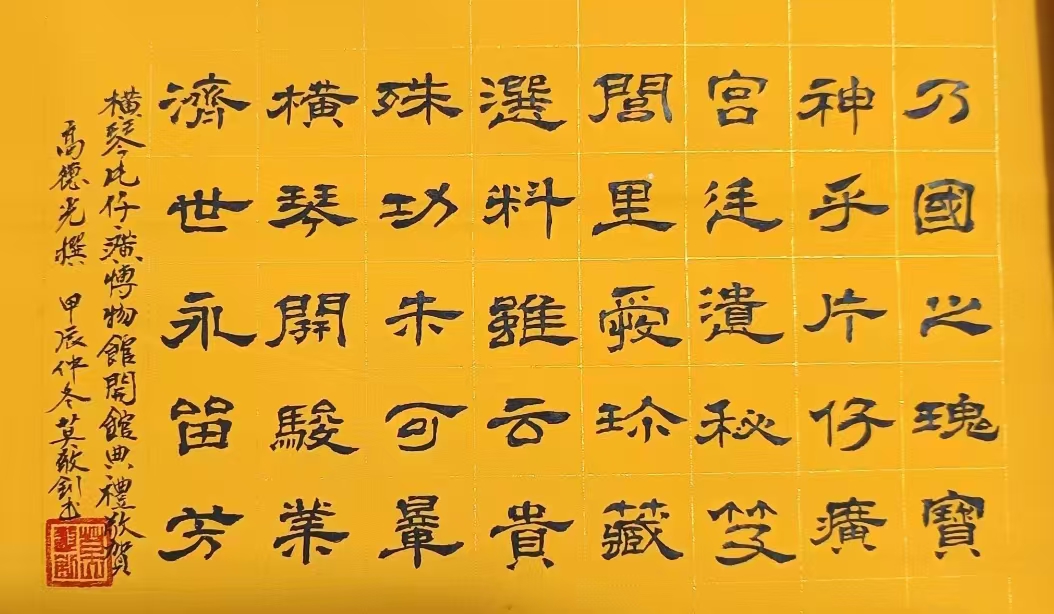 乃國之瑰寶
神乎片仔癀
宮廷遺秘笈
閭里愛珍藏
選料雖云貴
殊功未可量
橫琴開駿業
濟世永留芳
橫琴片仔癀博物館開館典禮致賀
高德光撰 甲辰仲冬莫釗書